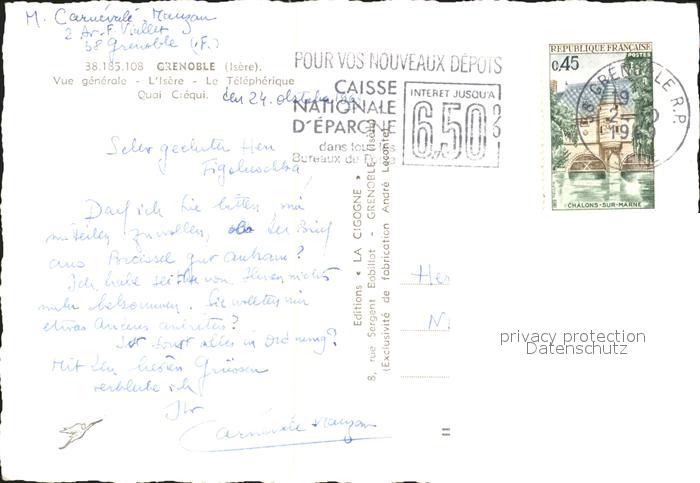 M. Carnévalé Manzan
2 Av. F. Viallet
38 Grenoble (F.)
38.185.108 GRENOBLE (Isère).
Vue générale - L'Isère - Le Téléphérique
Quai Créqui.
den 24. 
Sehr geehrter Herr
Darf ich Sie bitten mir
mitteilen zu wollen, ob der Brief
aus gut ankam?
Ich habe seither von Ihnen nichts
mehr bekommen. Sie wollten mir
etwas Anderes anbieten?
Ist sonst alles in Ordnung?
Mit den besten Grüssen
verbleibe ich
Ihr
Carnévalé Manzan
POUR VOS NOUVEAUX DÉPOTS
CAISSE
NATIONALE
D'ÉPARGNE
dans tous les
Bureaux de
INTERET JUSQU'A
6,50%
REPUBLIQUE FRANÇAISE
POSTES
0,45
CHALONS-SUR-MARNE
38 GRENOBLE R.P.
Editions « LA CIGOGNE »
8, rue Sergent Bobillot - GRENOBLE (Isère)
(Exclusivité de fabrication André Leconte)
Her
N
privacy protection
Datenschutz